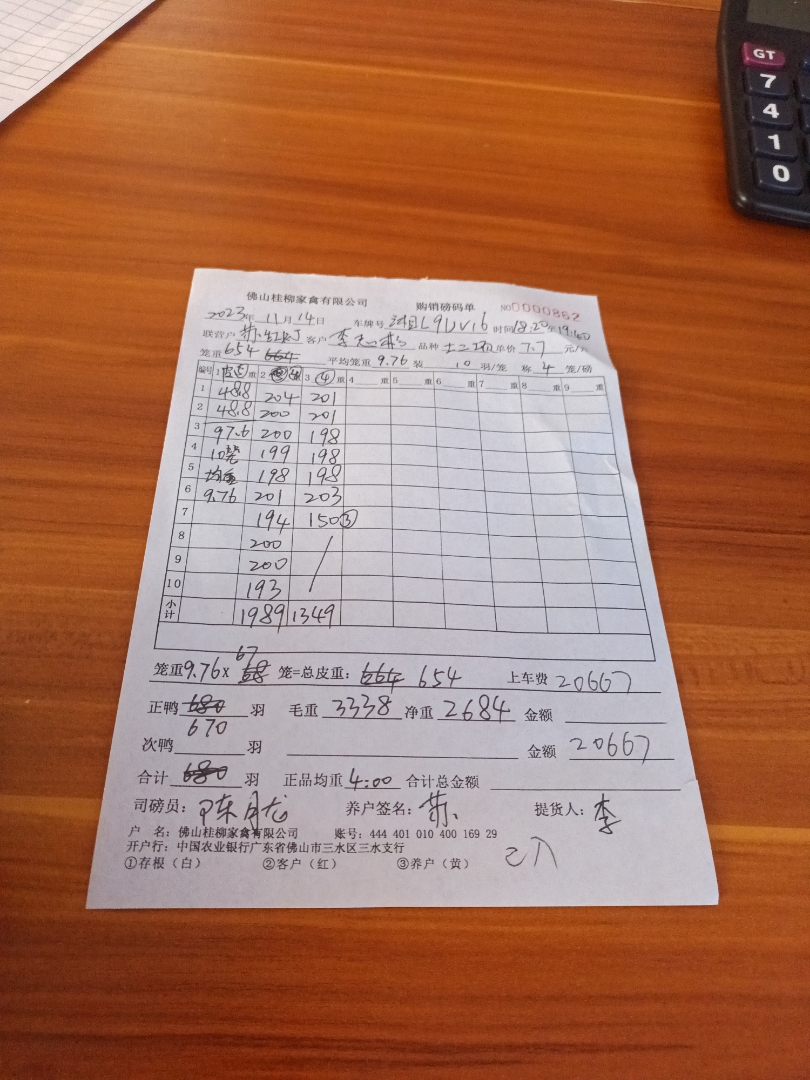 GT
7
4
1
0
佛山桂柳家禽有限公司 购销磅码单 NO0000862
2023年11月14日 车牌号 时间18:20至19:40
联营户 苏 客户 李 品种 单价7.7 元/
笼重654 664 平均笼重9.76 装10羽/笼 称4笼/磅
编号 1 重 2 ④ 重 3 ④ 重 4 重 5 重 6 重 7 重 8 重 9 重
1 48.8 204 201
2 48.8 200 201
3 97.6 200 198
4 10笼 199 198
5 均重 198 198
6 9.76 201 203
7 194 150③
8 200
9 200
10 193
小计 1989 1349
67
笼重9.76x 68 笼=总皮重: 664 654 上车费 20667
正鸭 680 羽 毛重 3338 净重 2684 金额
670
次鸭 羽 金额 20667
合计 680 羽 正品均重 4:00 合计总金额
司磅员: 陈月龙 养户签名: 苏 提货人: 李
户 名: 佛山桂柳家禽有限公司 账号: 444 401 010 400 169 29
开户行: 中国农业银行广东省佛山市三水区三水支行
①存根(白) ②客户(红) ③养户(黄)